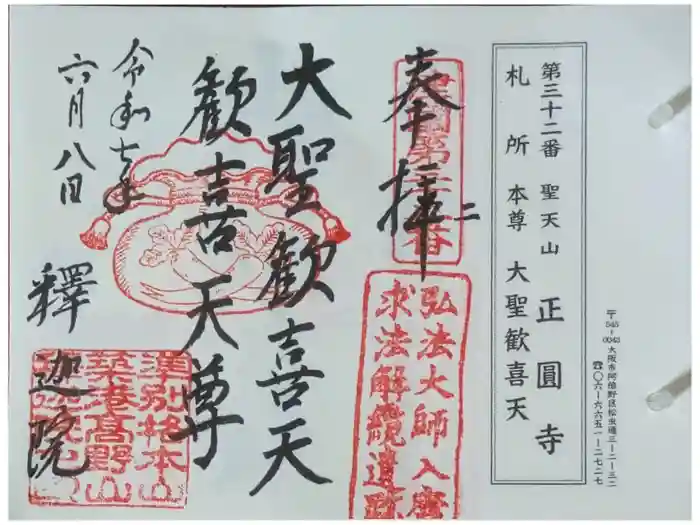 第三十二番 聖天山 正圓寺
札所本尊 大聖歓喜天
〒545-0043 大阪市阿倍野区松虫通三-二-三二
☎〇六-六六五一-二七二七
奉拝
弘法大師入唐
求法解纜遺跡
大聖歓喜天
歓喜天尊
令和七年
六月八日
釋迦院
準別格本山
築港高野山